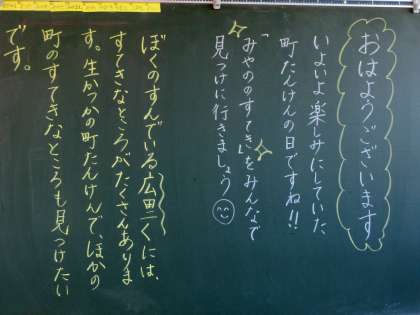 おはようございます
いよいよ楽しみにしていた
町たんけんの日ですね!!
「みやののすてき」をみんなで
見つけに行きましょう
ぼくのすんでいる広田二くには、
すてきなところがたくさんありま
す。生かつかの町たんけんで、ほかの
町のすてきなところも見つけたい
です。